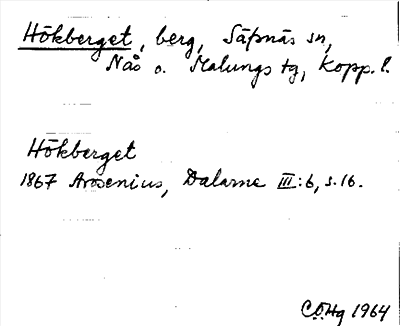 Hökberget, berg, Säfsnäs sn,
Nås o. Malungs tg, Kopp. l.
Hökberget
1867 Arosenius, Dalarne III:6, s. 16.
CÖHg 1964